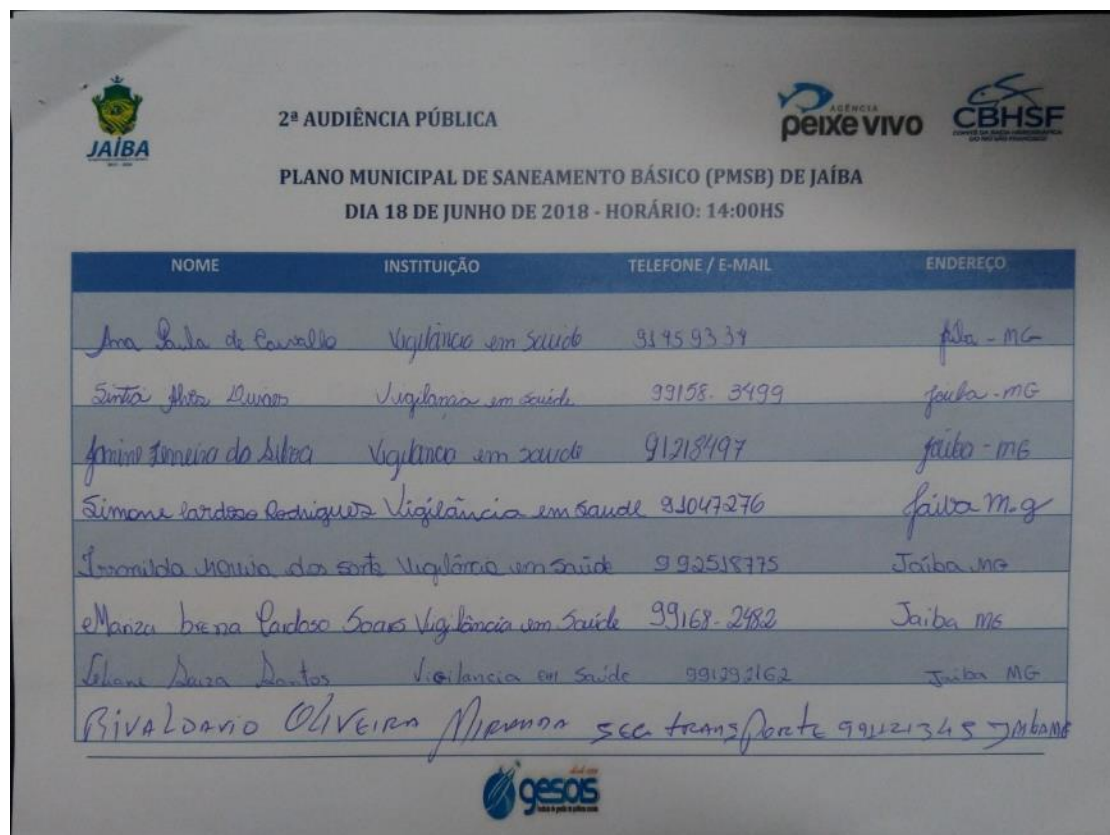 JAÍBA
2ª AUDIÊNCIA PÚBLICA
AGÊNCIA
peixe vivo
CBHSF
COMITÊ DA BACIA HIDROGRÁFICA
DO RIO SÃO FRANCISCO
PLANO MUNICIPAL DE SANEAMENTO BÁSICO (PMSB) DE JAÍBA
DIA 18 DE JUNHO DE 2018 - HORÁRIO: 14:00HS
NOME INSTITUIÇÃO TELEFONE / E-MAIL ENDEREÇO
Ana Paula de Carvalho Vigilância em Saúde 91959334 - MG
Alves Vigilancia em Saúde 99158-3499 Jaiba - MG
Janine Ferreira da Silva Vigilanca em saude 91218497 Jaiba - MG
Simone Cardoso Rodrigues Vigilância em Saude 91047276 Jaiba M.g
dos Vigilância em Saúde 992518775 Jaíba MG
Mariza brena Cardoso Soares Vigilância em Saúde 99168-2482 Jaiba MG
Souza Santos Vigilancia em Saúde 991292162 Jaiba MG
RIVALDAVIO OLIVEIRA MIRANDA SEC transPorte 991121345 JAIBAMG
gesois